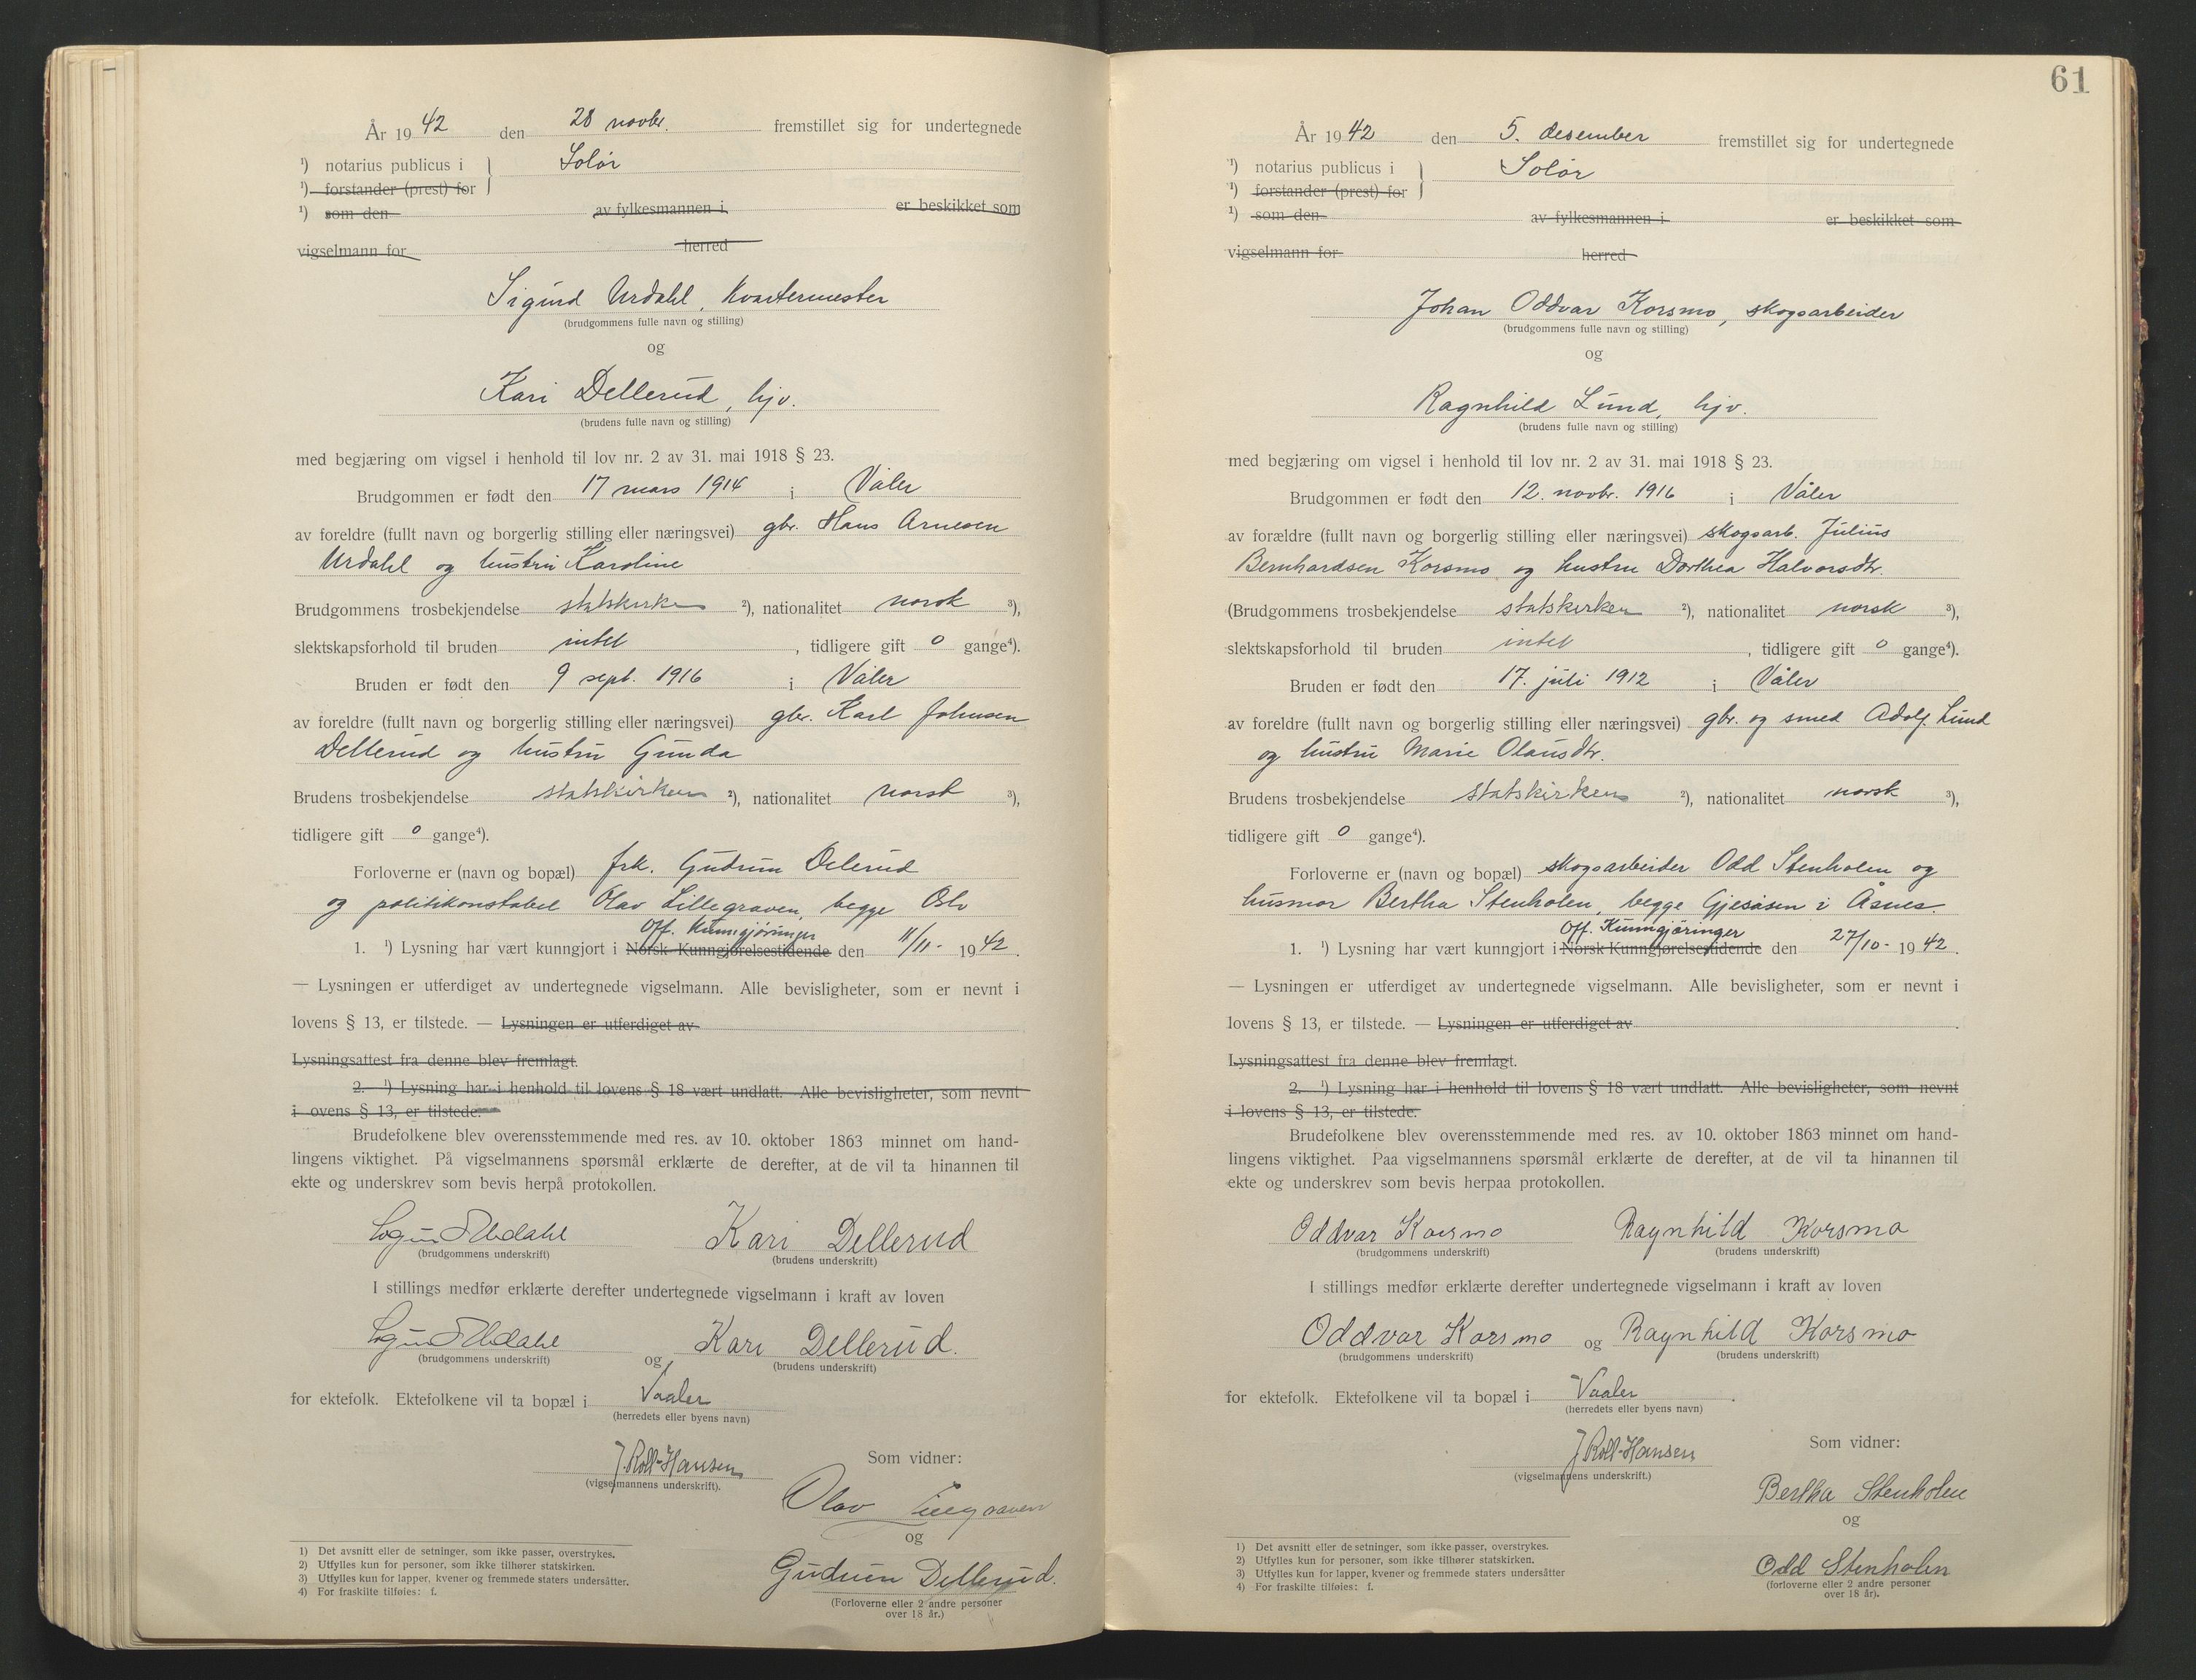 År 1942 den 28 novbr. fremstillet sig for undertegnede
¹) notarius publicus i } Solør
¹) forstander (prest) for
¹) som den av fylkesmannen i er beskikket som
vigselmann for herred
Sigurd Urdahl, Kvartermester
(brudgommens fulle navn og stilling)
og
Kari Dellerud, hjv.
(brudens fulle navn og stilling)
med begjæring om vigsel i henhold til lov nr. 2 av 31. mai 1918 § 23.
Brudgommen er født den 17 mars 1914 i Våler
av foreldre (fullt navn og borgerlig stilling eller næringsvei) gbr. Hans Arnesen
Urdahl og hustru Karoline
Brudgommens trosbekjendelse statskirken ²), nationalitet norsk ³),
slektskapsforhold til bruden intet, tidligere gift 0 gange⁴).
Bruden er født den 9 sept. 1916 i Våler
av foreldre (fullt navn og borgerlig stilling eller næringsvei) gbr. Karl Johnsen
Dellerud og hustru Gunda
Brudens trosbekjendelse statskirken ²), nationalitet norsk ³),
tidligere gift 0 gange⁴).
Forloverne er (navn og bopæl) frk. Gudrun Delerud
og politikonstabel Olav Lillegraven, begge Oslo
Off. Kunngjøringer
1. ¹) Lysning har vært kunngjort i Norsk Kunngjørelsestidende den 11/11- 1942.
— Lysningen er utferdiget av undertegnede vigselmann. Alle bevisligheter, som er nevnt i
lovens § 13, er tilstede. — Lysningen er utferdiget av
Lysningsattest fra denne blev fremlagt.
2. ¹) Lysning har i henhold til lovens § 18 vært undlatt. Alle bevisligheter, som nevnt
i ovens § 13, er tilstede.
Brudefolkene blev overensstemmende med res. av 10. oktober 1863 minnet om hand-
lingens viktighet. På vigselmannens spørsmål erklærte de derefter, at de vil ta hinannen til
ekte og underskrev som bevis herpå protokollen.
Sigurd Urdahl Kari Dellerud
(brudgommens underskrift) (brudens underskrift)
I stillings medfør erklærte derefter undertegnede vigselmann i kraft av loven
Sigurd Urdahl og Kari Dellerud.
(brudgommens underskrift) (brudens underskrift)
for ektefolk. Ektefolkene vil ta bopæl i Vaaler
(herredets eller byens navn)
J. Roll-Hansen
(vigselmannens underskrift).
Som vidner:
Olav Lillegraven
og
Gudrun Dellerud.
(Forloverne eller 2 andre personer
over 18 år.)
1) Det avsnitt eller de setninger, som ikke passer, overstrykes.
2) Utfylles kun for personer, som ikke tilhører statskirken.
3) Utfylles kun for lapper, kvener og fremmede staters undersåtter.
4) For fraskilte tilføies: f.
61
År 1942 den 5. desember fremstillet sig for undertegnede
¹) notarius publicus i } Solør
¹) forstander (prest) for
¹) som den av fylkesmannen i er beskikket som
vigselmann for herred
Johan Oddvar Korsmo, skogsarbeider
(brudgommens fulle navn og stilling)
og
Ragnhild Lund, hjv.
(brudens fulle navn og stilling)
med begjæring om vigsel i henhold til lov nr. 2 av 31. mai 1918 § 23.
Brudgommen er født den 12. novbr. 1916 i Våler
av forældre (fullt navn og borgerlig stilling eller næringsvei) skogsarb. Julius
Bernhardsen Korsmo og hustru Dorthea Halvorsdtr.
(Brudgommens trosbekjendelse statskirken ²), nationalitet norsk ³),
slektskapsforhold til bruden intet, tidligere gift 0 gange⁴).
Bruden er født den 17. juli 1912 i Våler
av foreldre (fullt navn og borgerlig stilling eller næringsvei) gbr. og smed Adolf Lund
og hustru Marie Olausdtr.
Brudens trosbekjendelse statskirken ²), nationalitet norsk ³),
tidligere gift 0 gange⁴).
Forloverne er (navn og bopæl) skogsarbeider Odd Stenholen og
husmor Bertha Stenholen, begge Gjesåsen i Åsnes.
Off. Kunngjøringer
1. ¹) Lysning har vært kunngjort i Norsk Kunngjørelsestidende den 27/10- 1942.
— Lysningen er utferdiget av undertegnede vigselmann. Alle bevisligheter, som er nevnt i
lovens § 13, er tilstede. — Lysningen er utferdiget av .
Lysningsattest fra denne blev fremlagt.
2. ¹) Lysning har i henhold til lovens § 18 vært undlatt. Alle bevisligheter, som nevnt
i lovens § 13, er tilstede.
Brudefolkene blev overensstemmende med res. av 10. oktober 1863 minnet om hand-
lingens viktighet. Paa vigselmannens spørsmål erklærte de derefter, at de vil ta hinannen til
ekte og underskrev som bevis herpaa protokollen.
Oddvar Korsmo Ragnhild Korsmo
(brudgommens underskrift) (brudens underskrift)
I stillings medfør erklærte derefter undertegnede vigselmann i kraft av loven
Oddvar Korsmo og Ragnhild Korsmo
(brudgommens underskrift) (brudens underskrift)
for ektefolk. Ektefolkene vil ta bopæl i Vaaler.
(herredets eller byens navn)
J Roll-Hansen
(vigselmannens underskrift.)
Som vidner:
Bertha Stenholen
og
Odd Stenholen
(forloverne eller 2 andre personer
over 18 år).
1) Det avsnitt eller de setninger, som ikke passer, overstrykes.
2) Utfylles kun for personer, som ikke tilhører statskirken.
3) Utfylles kun for lapper, kvener og fremmede staters undersåtter
4) For fraskilte tilføies: f.